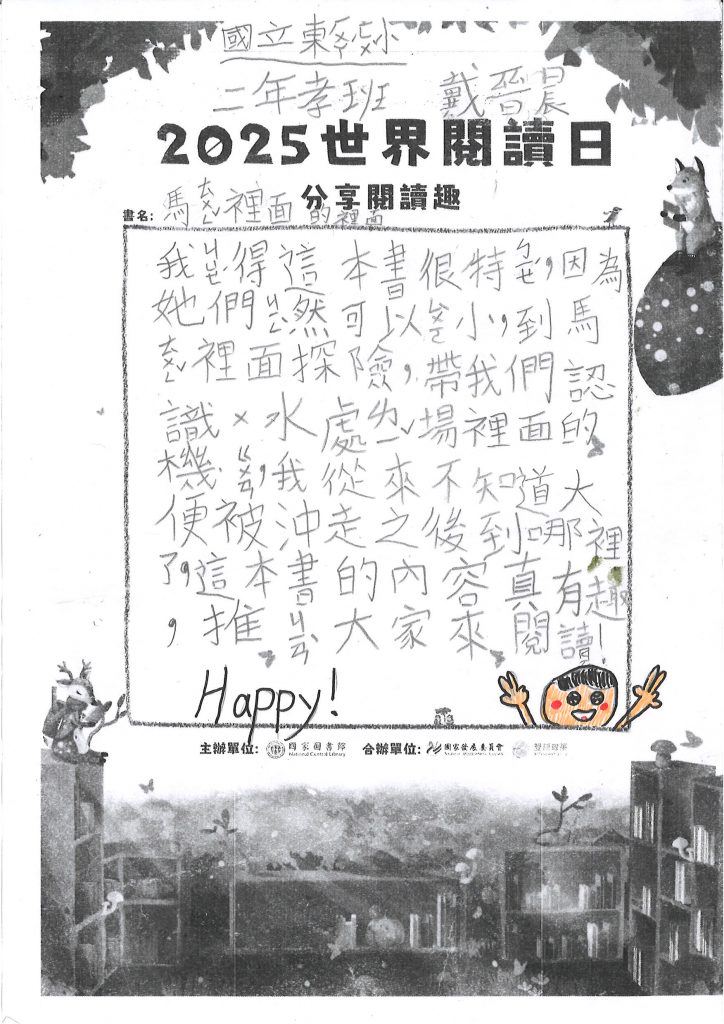 國立東ㄍㄨㄥˋ小
二年孝班 戴晉晨
2025世界閱讀日
分享閱讀趣
書名：馬ㄊㄨㄥˇ裡面的裡面
我ㄐㄩㄝˊ得這本書很特ㄅㄧㄝˊ，因為
她們ㄐㄩ然可以ㄅㄧㄢˋ小，到馬
ㄊㄨㄥˇ裡面探險，帶我們認
識ㄨ水處ㄌㄧˇ場裡面的
機ㄍㄡˋ，我從來不知道大
便被沖走之後到哪裡
了，這本書的內容真有趣
，推ㄐㄧㄢˋ大家來閱讀！
Happy!
主辦單位：國家圖書館 National Central Library 合辦單位：國家發展委員會 雙語政策